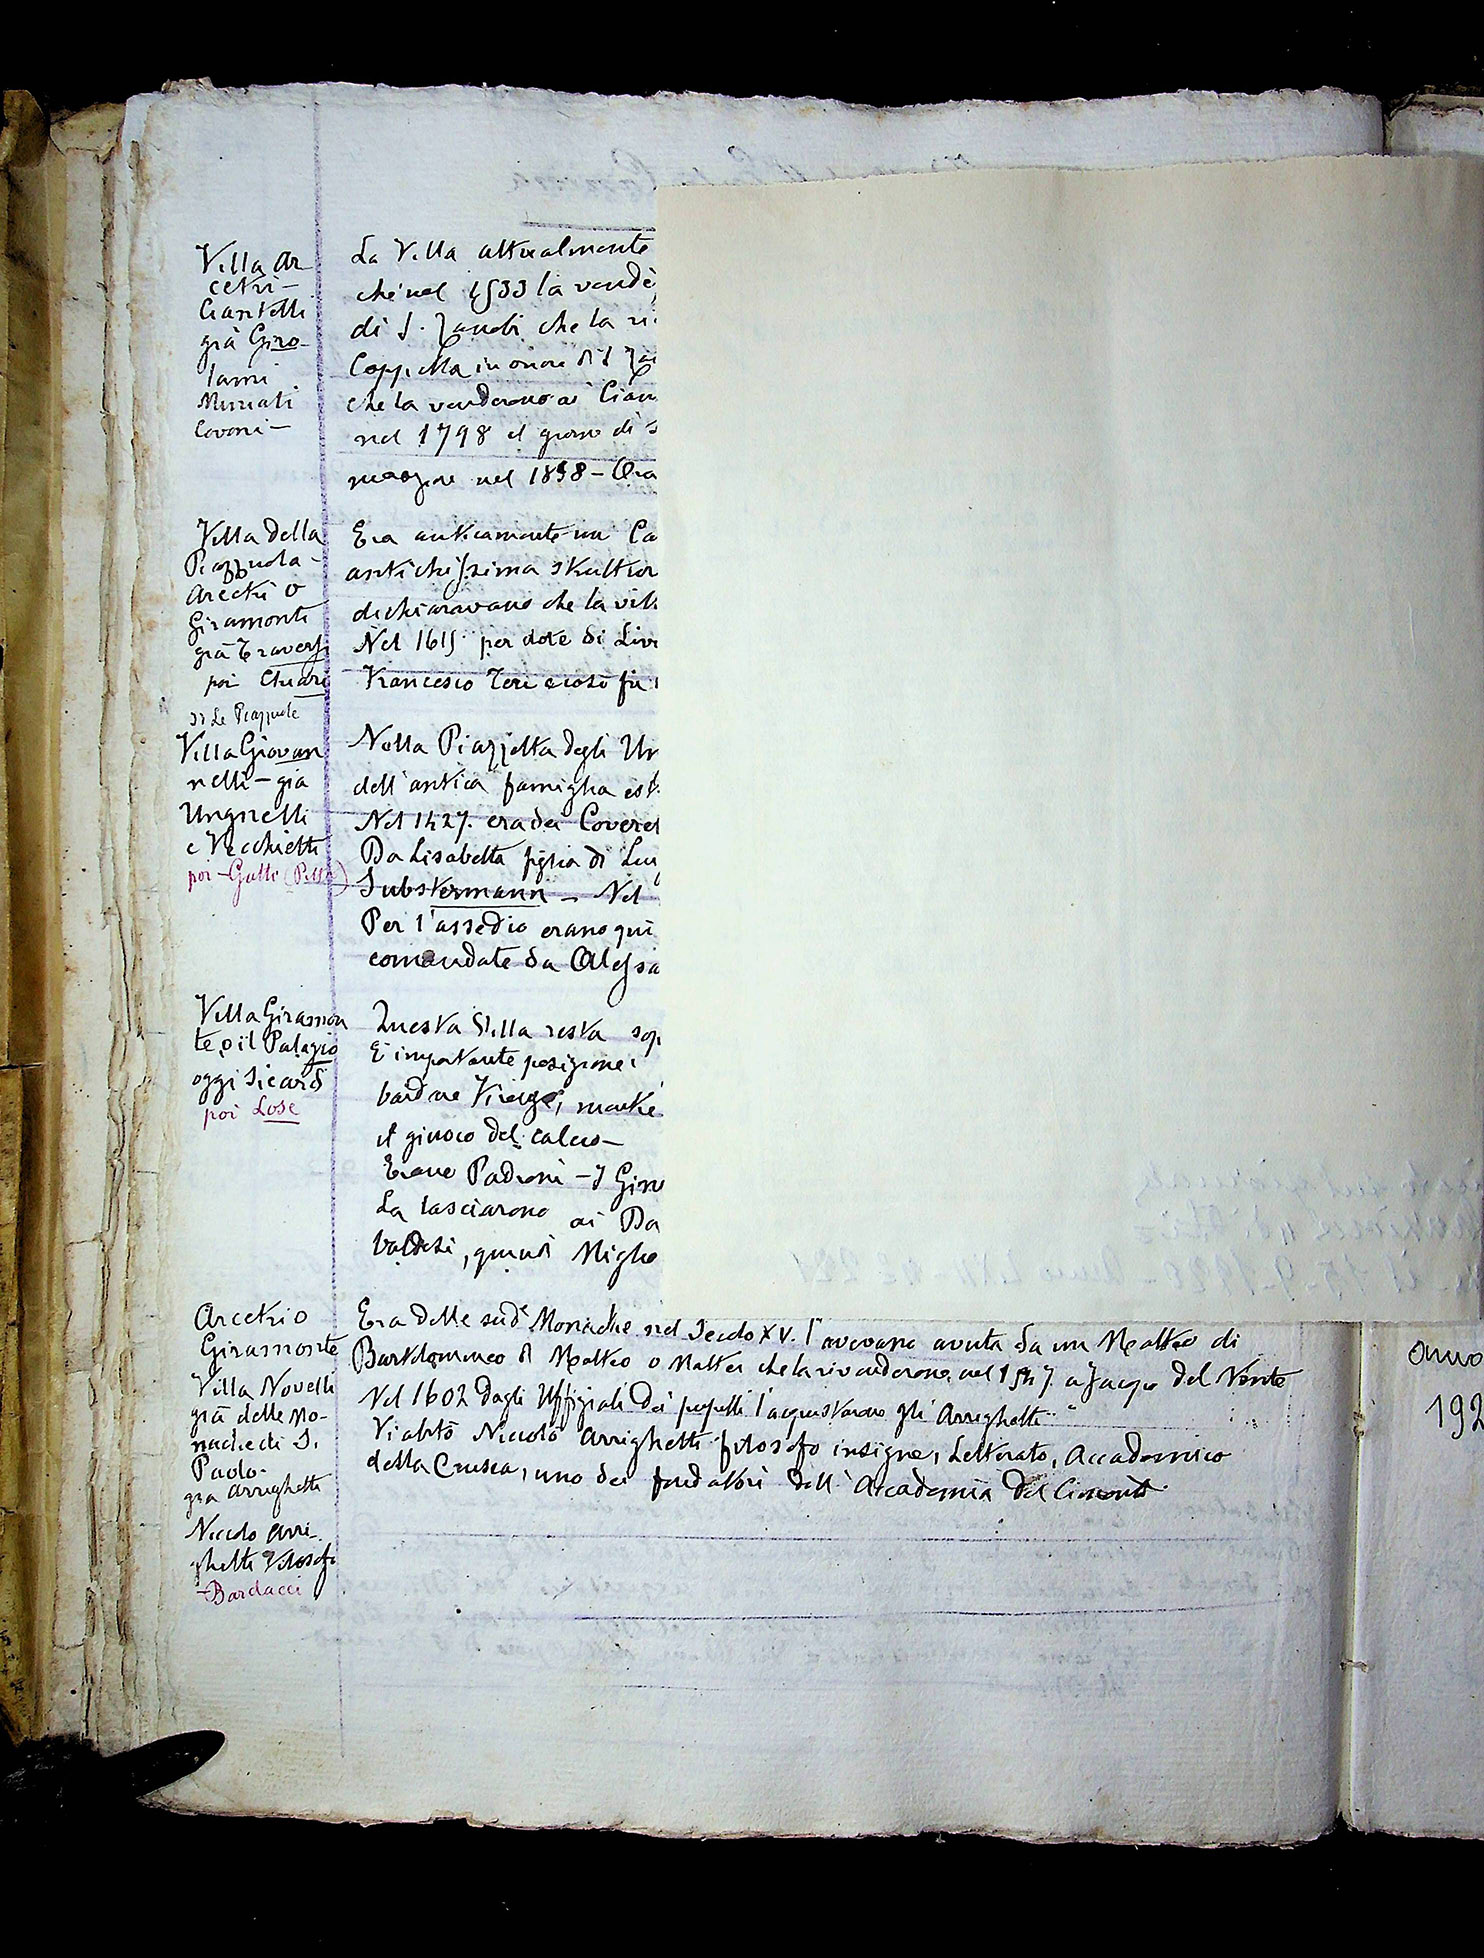 Villa Ar
cetri -
Ciantelli
già Giro-
lami
Murati
Covoni -
La Villa attualmente
che nel 1533 la vendè
di S. Zanobi che la ri
Cappella in onore di S Za
che la venderono ai Cian
nel 1798 il giorno di S
maggiore nel 1898 - Ora
Villa della
Piazzuola -
Arcetri o
Giramonte
già Traversi
poi Chiari
Le Piazzuole
Era anticamente un Ca
antichissima struttur
dichiaravano che la vill
Nel 1615 per dote di Livi
Francesco Teri e così fu
Villa Giovan
nelli - già
Ungnelli
e Vecchietti
poi - Gatti
Nella Piazzetta degli Un
dell'antica famiglia est
Nel 1427. era dei Coverel
Da Lisabetta figlia di Lui
Substermann - Nel
Per l'assedio erano qui
comandate da Alessa
Villa Giramon
te o il Palagio
oggi Sicard
poi Lose
Questa Villa resta sop
E importante posizione
il giuoco del calcio -
Erano Padroni - I Giro
La lasciarono ai Da
Valdesi, quindi Miglio
Arcetri o
Giramonte
Villa Novelli
già delle Mo-
nache di S.
Paolo -
già Arrighetti
Niccolò Arri-
ghetti Filosofo
- Bardacci
Era delle sudᵉ Monache nel Secolo XV. l'avevano avuta da un Matteo di
Bartolommeo di Matteo o Mattei che la rivenderono nel 1547. a Jacopo del Vente
Nel 1602 dagli Uffiziali dei pupilli l'acquistarono gli Arrighetti
Vi abitò Niccolò Arrighetti filosofo insigne, Letterato, Accademico
della Crusca, uno dei fondatori dell'Accademia del Cimento.
anno
192